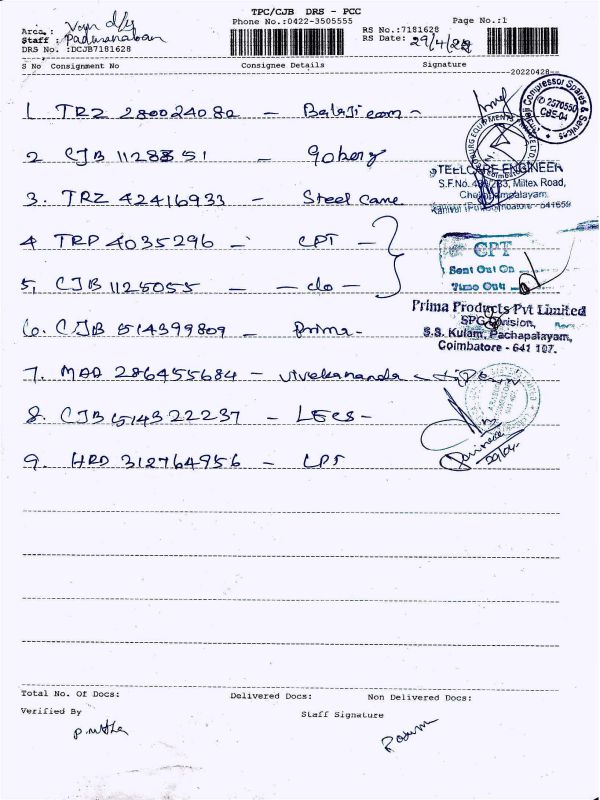 TPC/CJB DRS - PCC
Phone No.:0422-3505555
Page No.:1
Area :
Staff : Padmanaban
DRS No. :DCJB7181628
RS No.:7181628
RS Date: 29/4/22
S No Consignment No Consignee Details Signature
20220428--
1 TRZ 280024082 - Balaji com -
2 CJB 1128351 - Goberg
3. TRZ 42416933 - Steel Cane
4 TRP 4035296 - CPT -
5, CJB 1125055 - - do -
6. CJB 514399809 - Prima -
7. MAA 286455684 - Vivekananda
8. CJB 514322237 - LECS -
9. HRD 312764956 - CPT
Compressor Spares & Services
2570550
CBE-04
STEELCARE ENGINEER
Miltex Road,
CPT
Sent Out On
Time Out
Prima Products Pvt Limited
SPG Division,
S.S. Kulam, Pachapalayam,
Coimbatore - 641 107.
29/04
Total No. Of Docs: Delivered Docs: Non Delivered Docs:
Verified By
Staff Signature